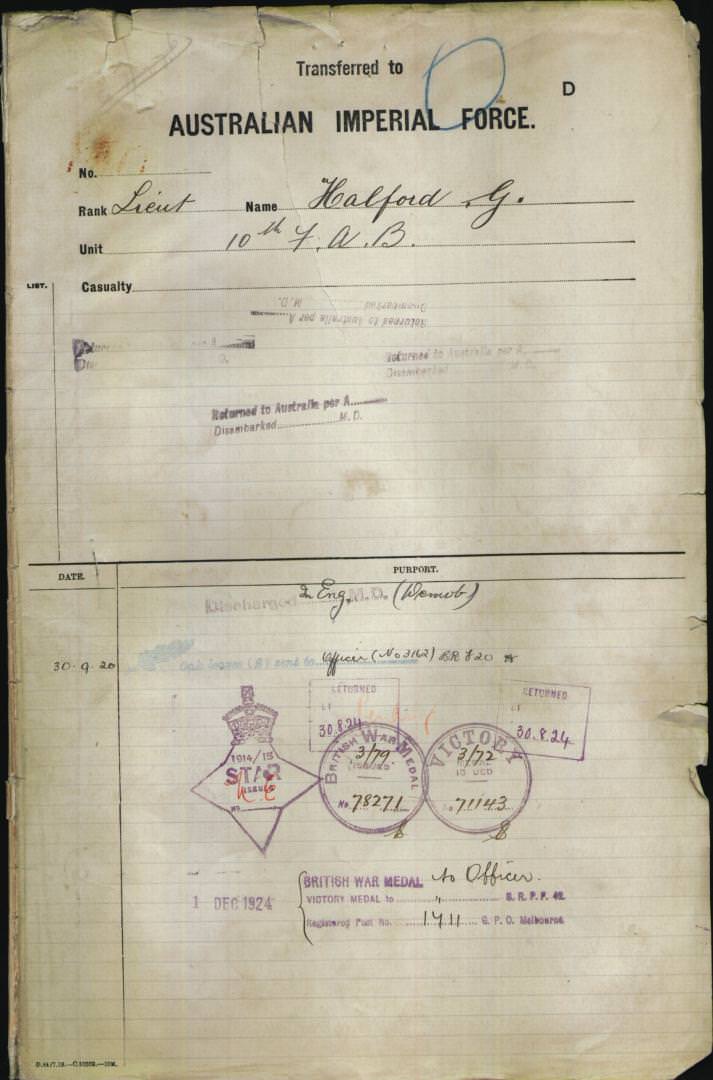 Transferred to
D
AUSTRALIAN IMPERIAL FORCE.
No.
Rank Lieut Name Halford G.
Unit 10th F. A. B.
LIST.
Casualty
Returned to Australia per A
Disembarked M.D.
Returned to Australia per A.
Disembarked M.D.
Returned to Australia per A
Disembarked M.D.
DATE. PURPORT.
Discharged In Eng. M.D. (Demob)
30.9.20 sent to Officer (No 3162)
RETURNED
30.8.24
RETURNED
30.8.24
1914/15
STAR
ISSUED
N.E
No
BRITISH WAR MEDAL
3/79
ISSUED
No 78271
VICTORY
3/72
No 71143
1 DEC 1924
BRITISH WAR MEDAL to Officer.
VICTORY MEDAL to " B.R.P.F. 42.
Registered Post No. 1711 G.P.O. Melbourne